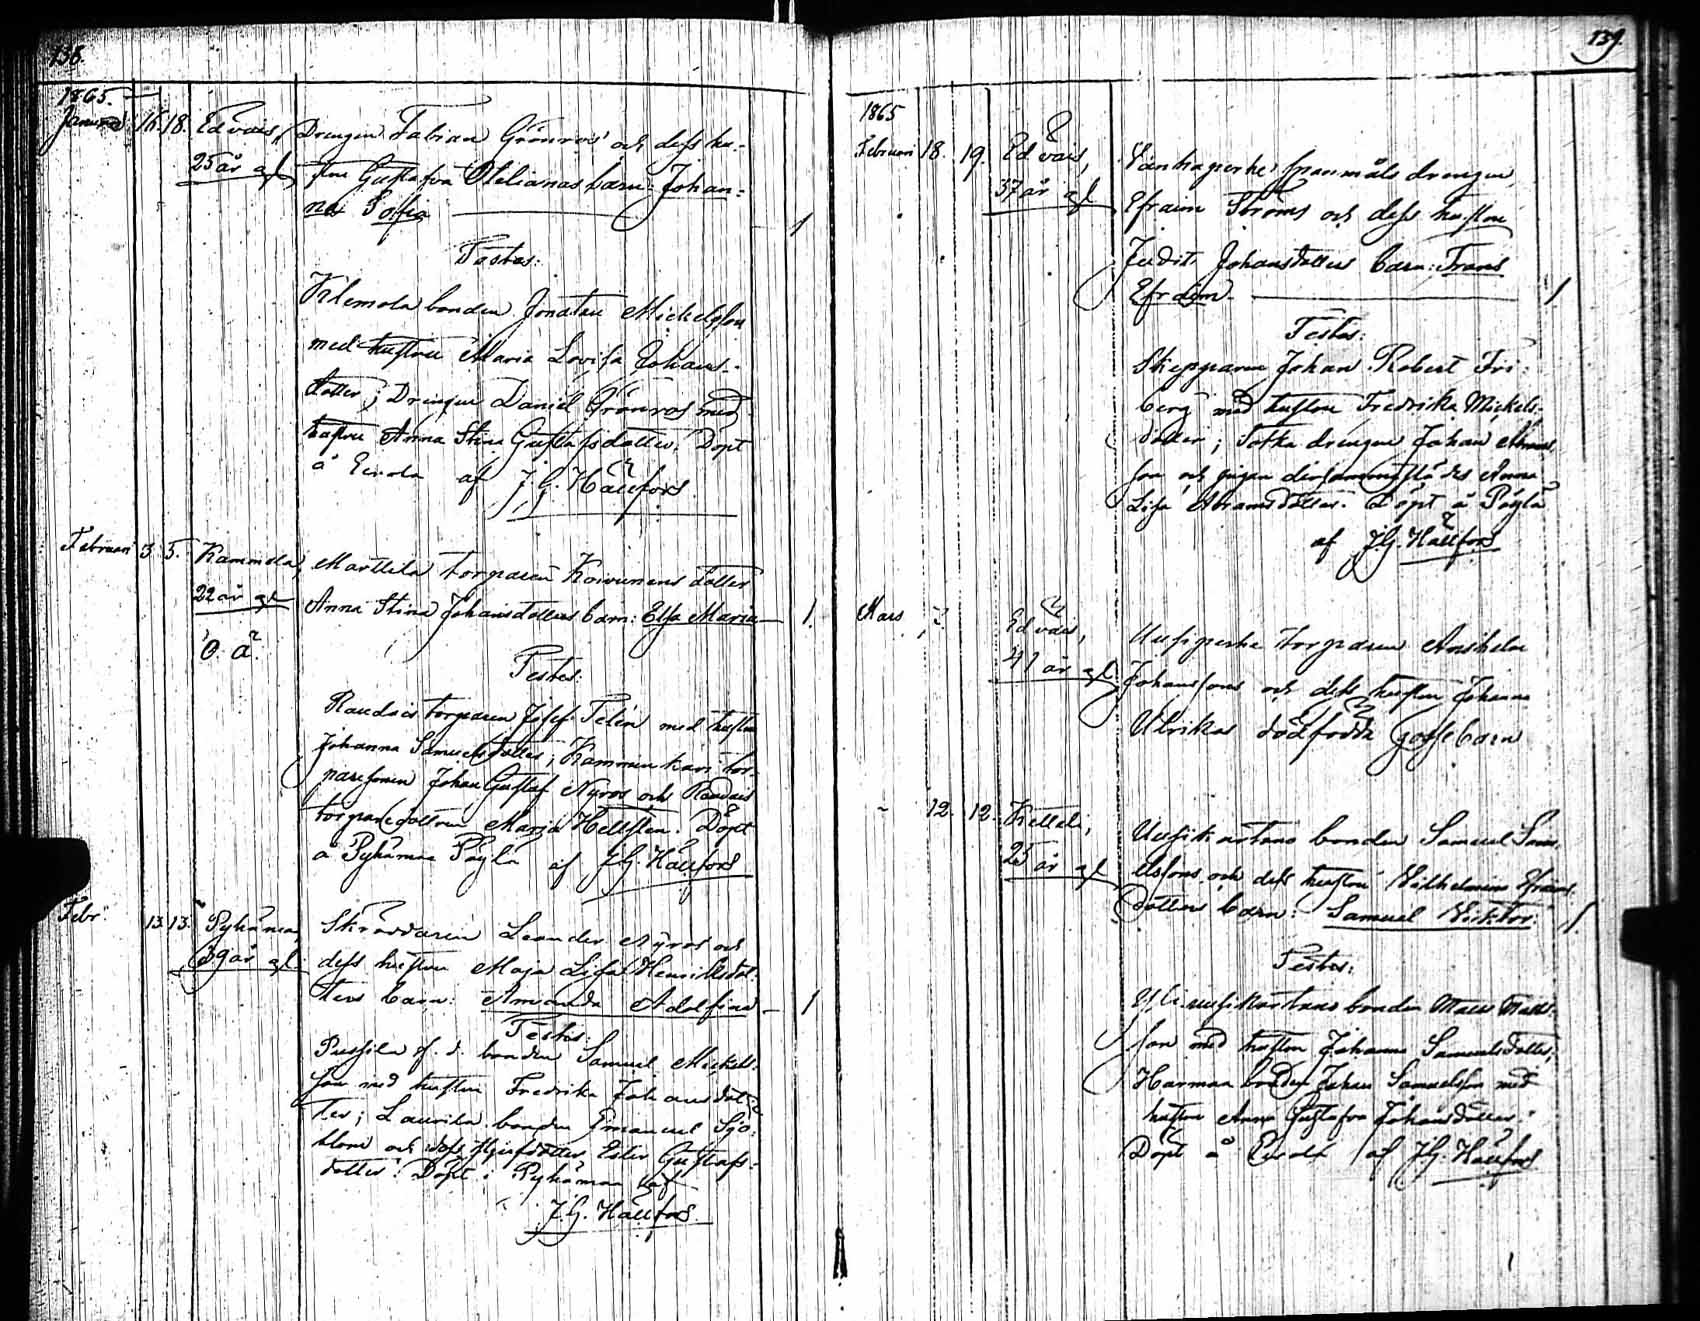 138.
1865.
Januari 16. 18. Edväis, Drengen Fabian Grönros' och dess hu-
25 år gl stru Gustafva Otilianas barn: Johan-
na Sofia 1
Testes:
Klemola bonden Jonatan Mickelsson
med hustru Maria Lovisa Johans-
dotter; Drengen Daniel Grönros med
hustru Anna Stina Gustafsdotter. Döpt
å Eirola af J. G. Hällfors
Februari 3. 5. Kammela, Marttela torparen Koivunens dotter
22 år gl Anna Stina Johansdotters barn: Elsa Maria 1.
O. ä.
Testes:
Raudais torparen Josef Telén med hustru
Johanna Samuelsdotter; Kammenkari tor-
paresonen Johan Gustaf Nyros och Raudais
torparedottren Maria Hellsten. Döpt
å Pyhämaa Päylä af J. G. Hällfors
Febr. 13. 13. Pyhämaa, Skräddaren Leander Nyros och
39 år gl. dess hustru Maja Lisa Henriksdot-
ters barn: Amanda Adolfina 1
Testes:
f. d. bonden Samuel Mickels-
son med hustru Fredrika Johansdot-
ter; Laurila bonden Emanuel Sjö-
blom och dess Ester Gustafs-
dotter. Döpt i Pyhämaa af
J. G. Hällfors.
139.
1865
Februari 18. 19. Edväis, Vanhaperhe spanmåls drengen
37 år gl Efraim Ströms och dess hustru
Judit Johansdotters barn: Frans
Efraim 1
Testes:
Skepparen Johan Robert Fri-
berg med hustru Fredrika Mickels-
dotter; Sotka drengen Johan
son och pigan dersammastädes Anna
Lisa Abramsdotter. Döpt å Päylä
af J. G. Hällfors
Mars 7. Edväis, Uusiperhe torparen Anshelm
41 år gl Johanssons och dess hustru Johanna
Ulrikas dödfödda gossebarn
12. 12. Ketteli, Uusikartano bonden Samuel Samu-
25 år gl elssons och dess hustru Vilhelmina Efraims-
dotters barn: Samuel Viktor 1
Testes:
bonden Matts Matts-
son med hustru Johanna Samuelsdotter;
Harmaa bonden Johan Samuelsson med
hustru Anna Gustafva Johansdotter.
Döpt å Eirola af J. G. Hällfors